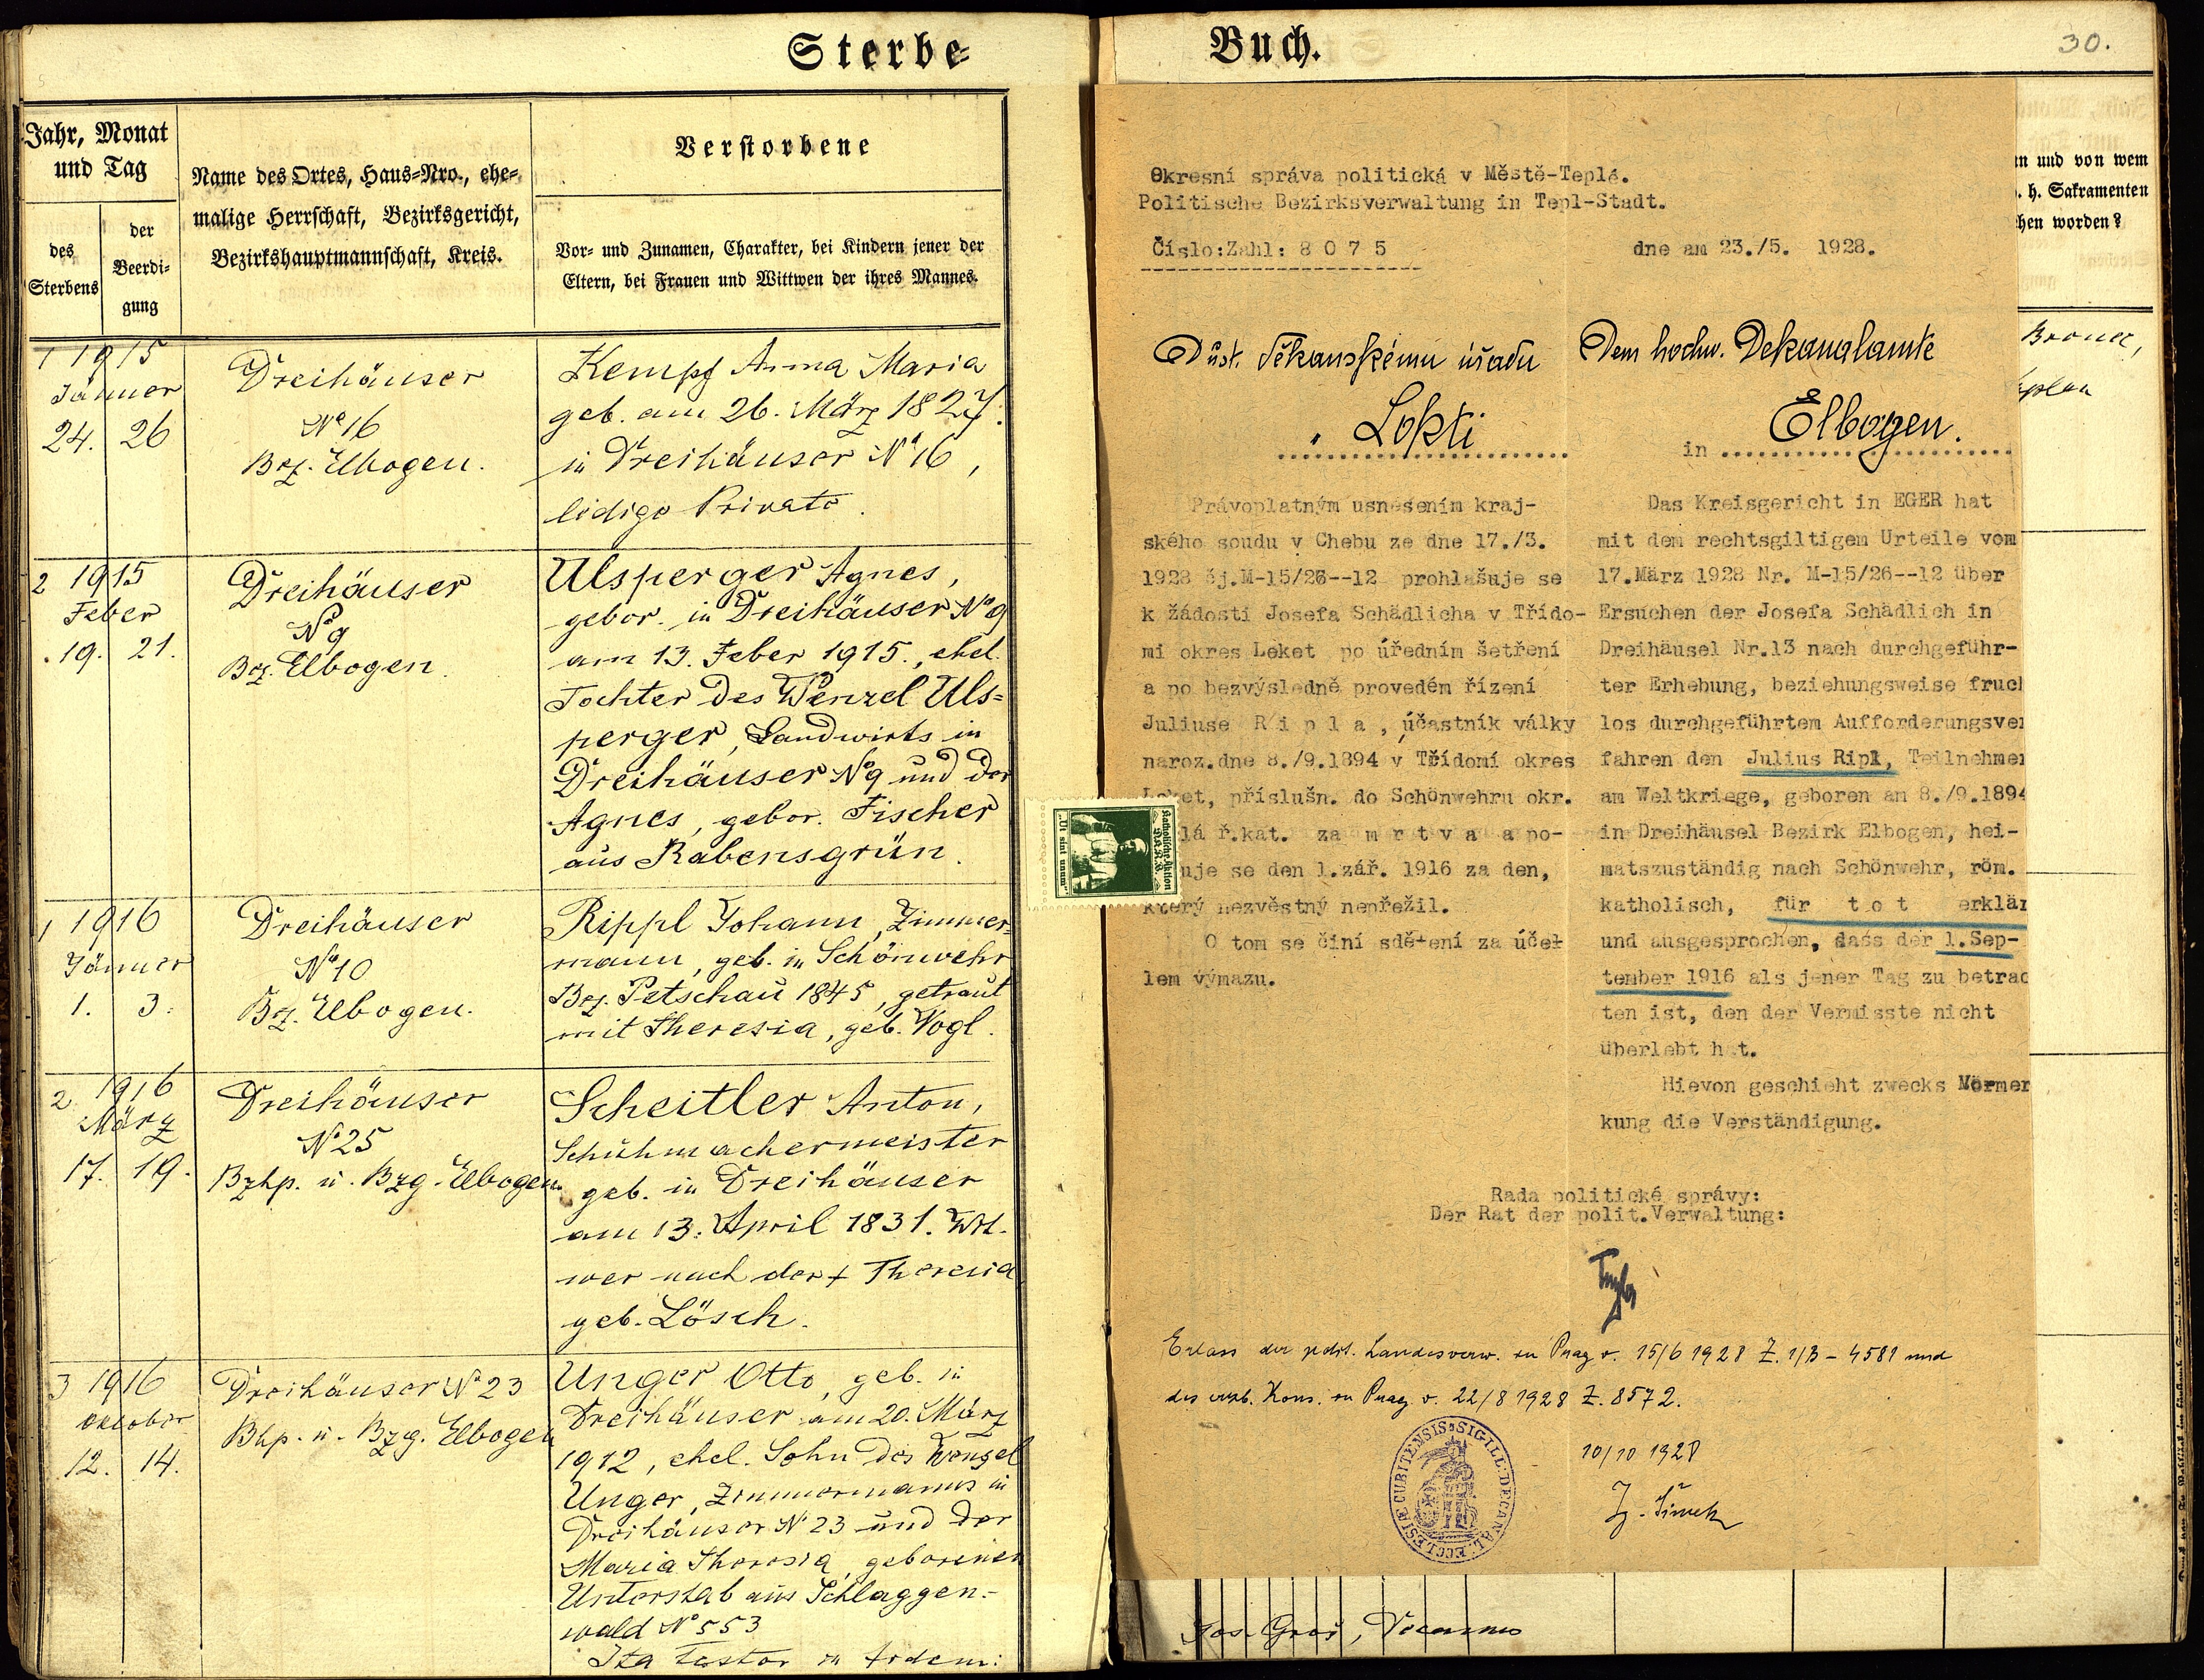 Sterbe=
Jahr, Monat
und Tag
des
Sterbens
der
Beerdi=
gung
Name des Ortes, Haus=Nro., ehe=
malige Herrschaft, Bezirksgericht,
Bezirkshauptmannschaft, Kreis.
Verstorbene
Vor= und Zunamen, Charakter, bei Kindern jener der
Eltern, bei Frauen und Wittwen der ihres Mannes.
1 1915
Jänner
24. 26
Dreihäuser
No 16
Bez. Elbogen.
Kempf Anna Maria
geb. am 26. März 1827.
in Dreihäuser No 16,
ledige Private.
2 1915
Feber
19. 21.
Dreihäuser
No 9
Bez. Elbogen.
Ulsperger Agnes,
gebor. in Dreihäuser No 9
am 13. Feber 1915., ehel.
Tochter des Wenzel Uls=
perger, Landwirts in
Dreihäuser No 9 und der
Agnes, gebor. Fischer
aus Rabensgrün.
1 1916
Jänner
1. 3.
Dreihäuser
No 10
Bez. Elbogen.
Rippl Johann, Zimmer=
mann, geb. in Schönwehr
Bez. Petschau 1845, getraut
mit Theresia, geb. Vogl.
2. 1916
März
17. 19.
Dreihäuser
No 25
Bzhp. u. Bzg. Elbogen
Scheitler Anton,
Schuhmachermeister
geb. in Dreihäuser
am 13. April 1831. Wit-
wer nach der + Theresia
geb. Lösch.
3 1916
Oktober
12. 14.
Dreihäuser No 23
Bhp. u. Bzg. Elbogen
Unger Otto, geb. in
Dreihäuser am 20. März
1912, ehel. Sohn des Wenzel
Unger, Zimmermanns in
Dreihäuser No 23 und der
Maria Theresia, geborenen
Unterstab aus Schlaggen=
wald No 553
Ita testor in fidem:
Buch.
30.
Okresní správa politická v Městě-Teplé.
Politische Bezirksverwaltung in Tepl-Stadt.
Číslo:Zahl: 8 0 7 5
dne am 23./5. 1928.
Důst. děkanskému úřadu
v Lokti
Dem hochw. Dekanalamte
in Elbogen.
Právoplatným usnesením kraj-
ského soudu v Chebu ze dne 17./3.
1928 čj.M-15/26--12 prohlašuje se
k žádosti Josefa Schädlicha v Třído-
mi okres Loket po úředním šetření
a po bezvýsledně provedém řízení
Juliuse R i p l a , účastník války
naroz.dne 8./9.1894 v Třídomí okres
Loket, příslušn. do Schönwehru okr.
lá ř.kat. za m r t v a a po-
uje se den 1.zář. 1916 za den,
který nezvěstný nepřežil.
O tom se činí sdělení za účel
lem výmazu.
Das Kreisgericht in EGER hat
mit dem rechtsgiltigem Urteile vom
17.März 1928 Nr. M-15/26--12 über
Ersuchen der Josefa Schädlich in
Dreihäusel Nr.13 nach durchgeführ-
ter Erhebung, beziehungsweise fruch
los durchgeführtem Aufforderungsver
fahren den Julius Ripl, Teilnehmer
am Weltkriege, geboren am 8./9.1894
in Dreihäusel Bezirk Elbogen, hei-
matszuständig nach Schönwehr, röm.
katholisch, für t o t erklär
und ausgesprochen, dass der 1.Sep-
tember 1916 als jener Tag zu betrac
ten ist, den der Vermisste nicht
überlebt hat.
Hievon geschieht zwecks Vormer
kung die Verständigung.
Rada politické správy:
Der Rat der polit.Verwaltung:
Erlass der polit. Landesverw. in Prag v. 15/6 1928 Z. 1/B - 4581 und
des erzb. Kons. in Prag v. 22/8 1928 Z. 8572.
10/10 1928
SIGILL: DECANAL: ECCLESIÆ CUBITENSIS
Katholische Aktion
"Ut sint unum"
n und von wem
. h. Sakramenten
hen worden?
Jos. Groš,